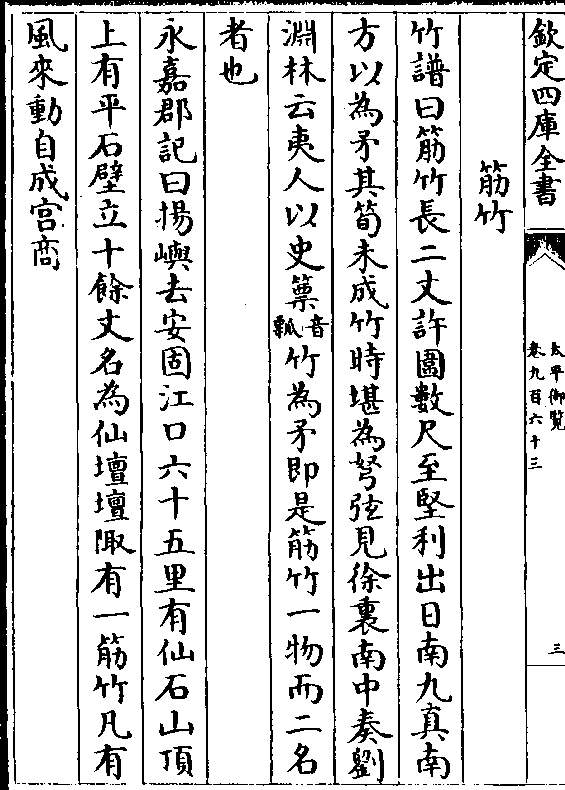 欽定四庫全書
太平御覧
卷九百六十三
三
筋竹
竹譜曰筋竹長二丈許圍數尺至堅利出日南九真南
方以為矛其筍未成竹時堪為弩弦見徐裏南中奏劉
淵林云夷人以史䉛音瓢竹為矛即是筋竹一物而二名
者也
永嘉郡記曰揚嶼去安固江口六十五里有仙石山頂
上有平石壁立十餘丈名為仙壇壇陬有一筋竹凡有
風來動自成宫商